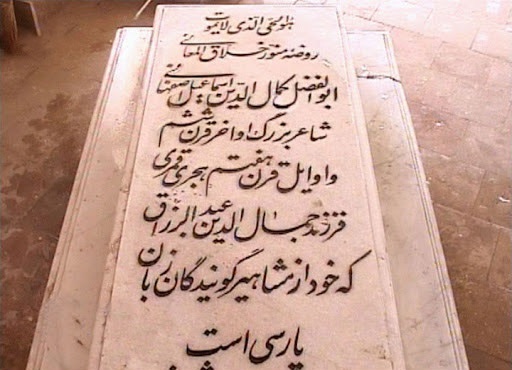 هوالحی الذی لایموت
روضه منور خلاق المعانی
ابوالفضل کمال الدین اسماعیل اصفهانی
شاعر بزرگ اواخر قرن ششم
و اوایل قرن هفتم هجری قمری
فرزند جمال الدین عبدالرزاق
که خود از مشاهیر گویندگان زبان
پارسی است